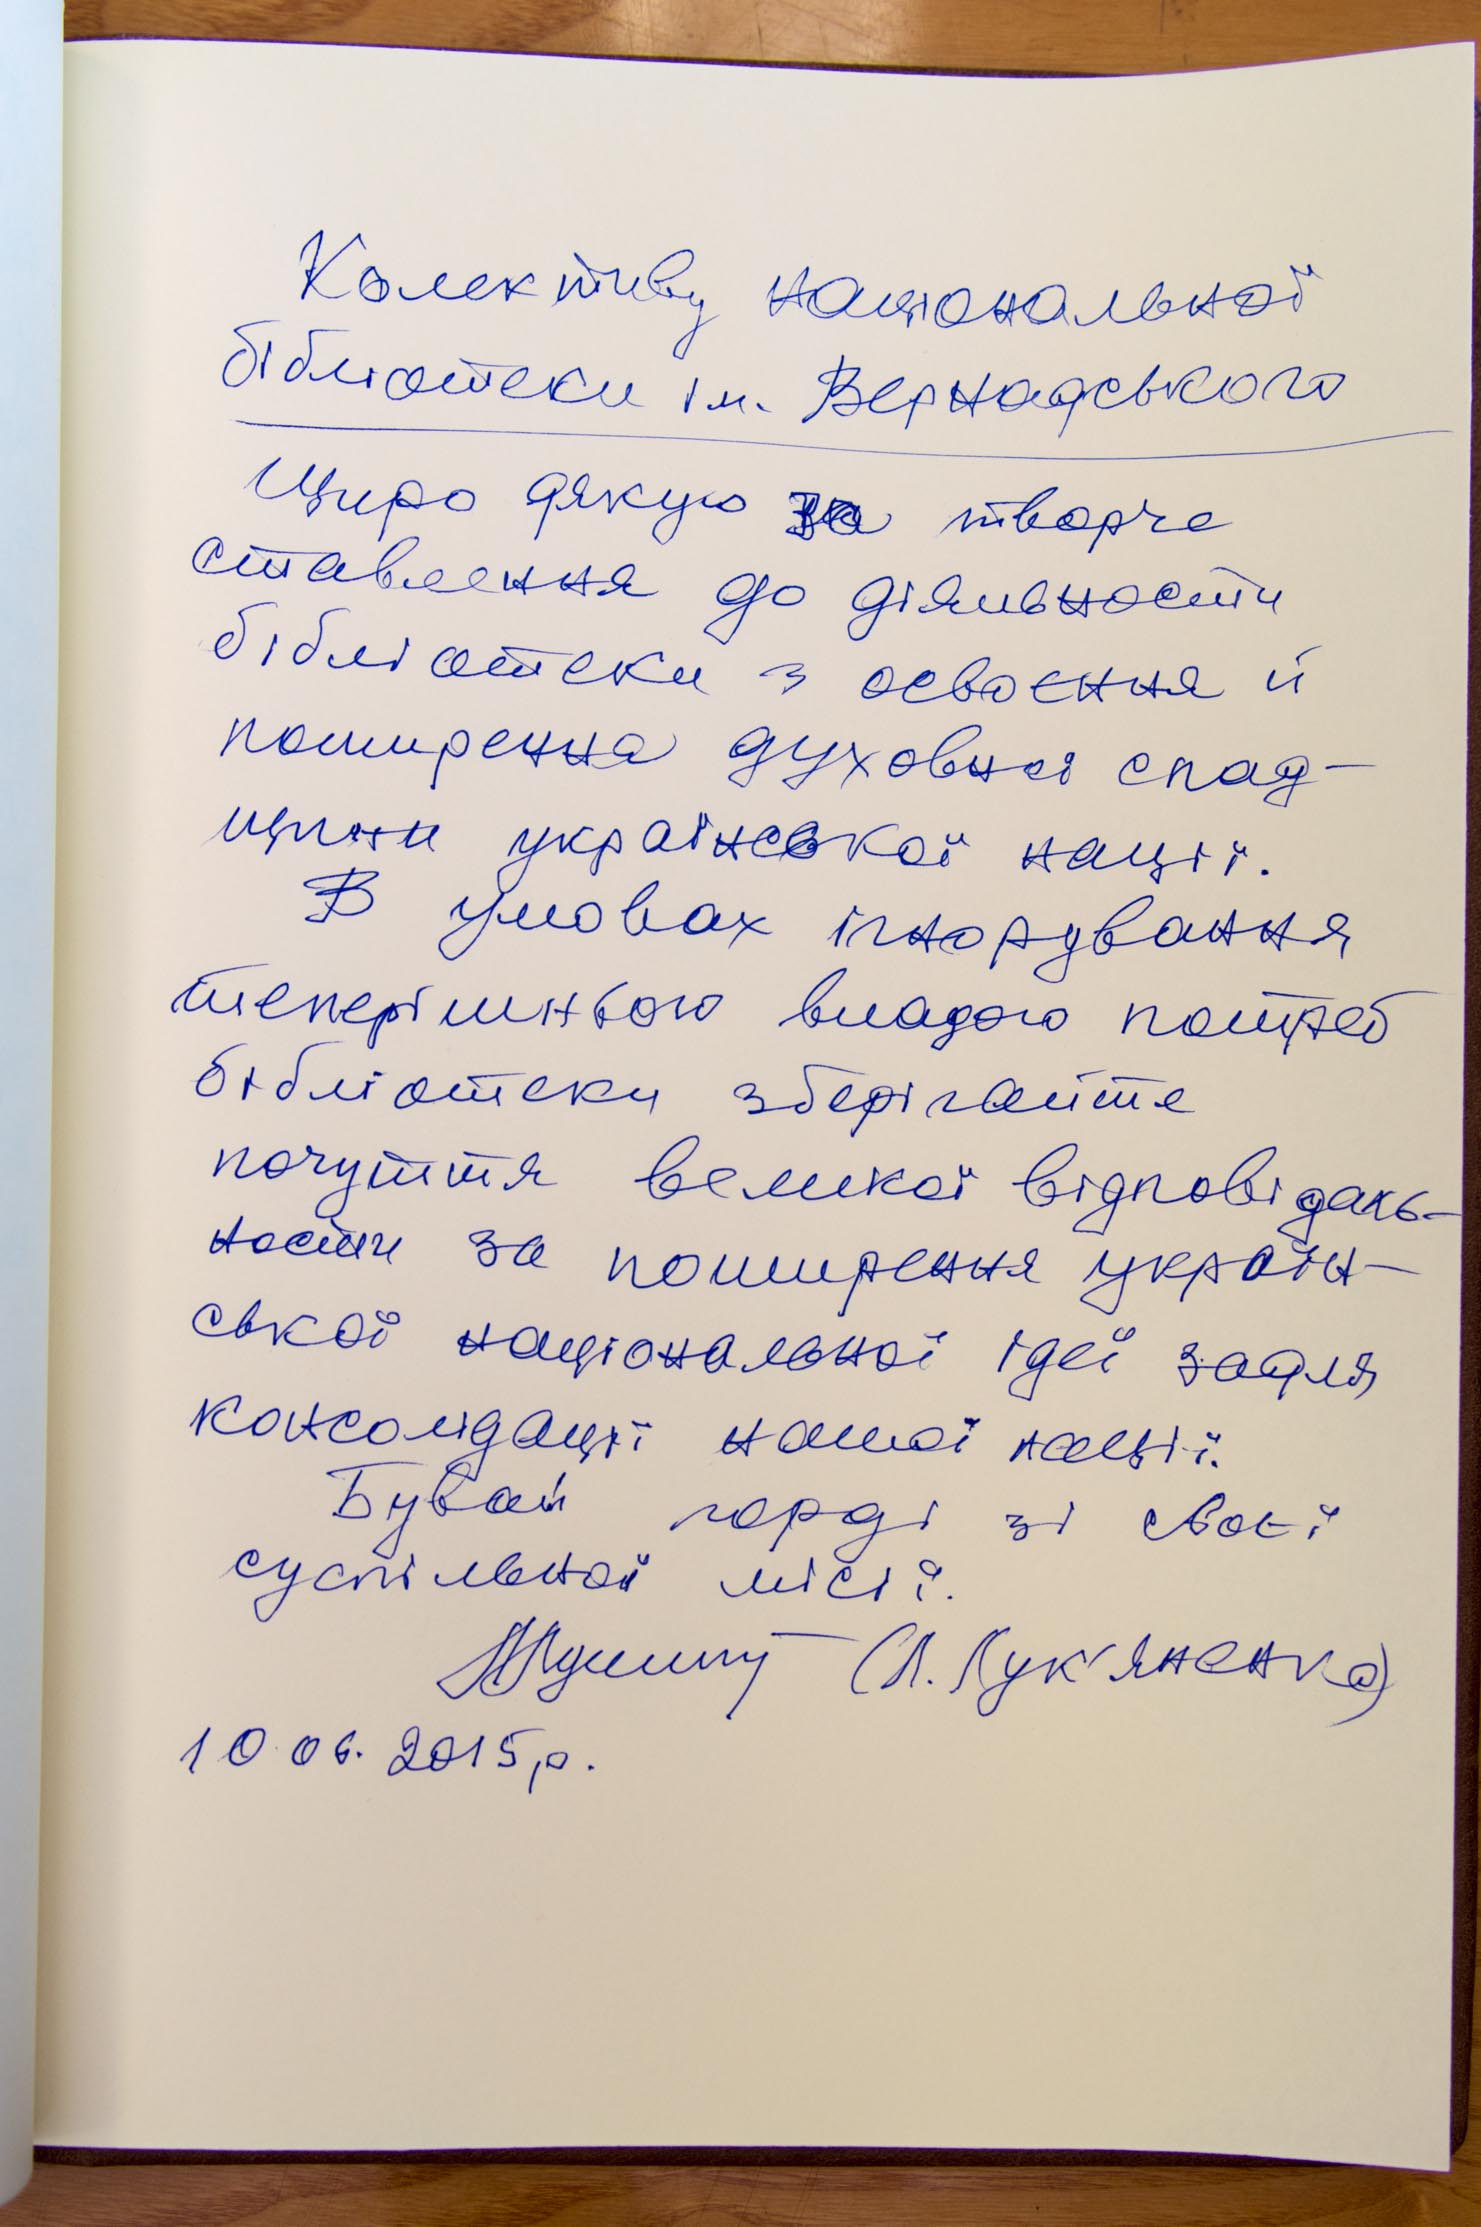 Колективу національної
бібліотеки ім. Вернадського
Щиро дякую за творче
ставлення до діяльности
бібліотеки з освоєння й
поширення духовної спад-
щини української нації.
В умовах ігнорування
теперішньою владою потреб
бібліотеки зберігайте
почуття великої відповідаль-
ности за поширення україн-
ської національної ідеї задля
консолідації нашої нації.
Бувай горді зі своєї
суспільної місії.
(Л. Лук'яненко)
10 06. 2015 р.